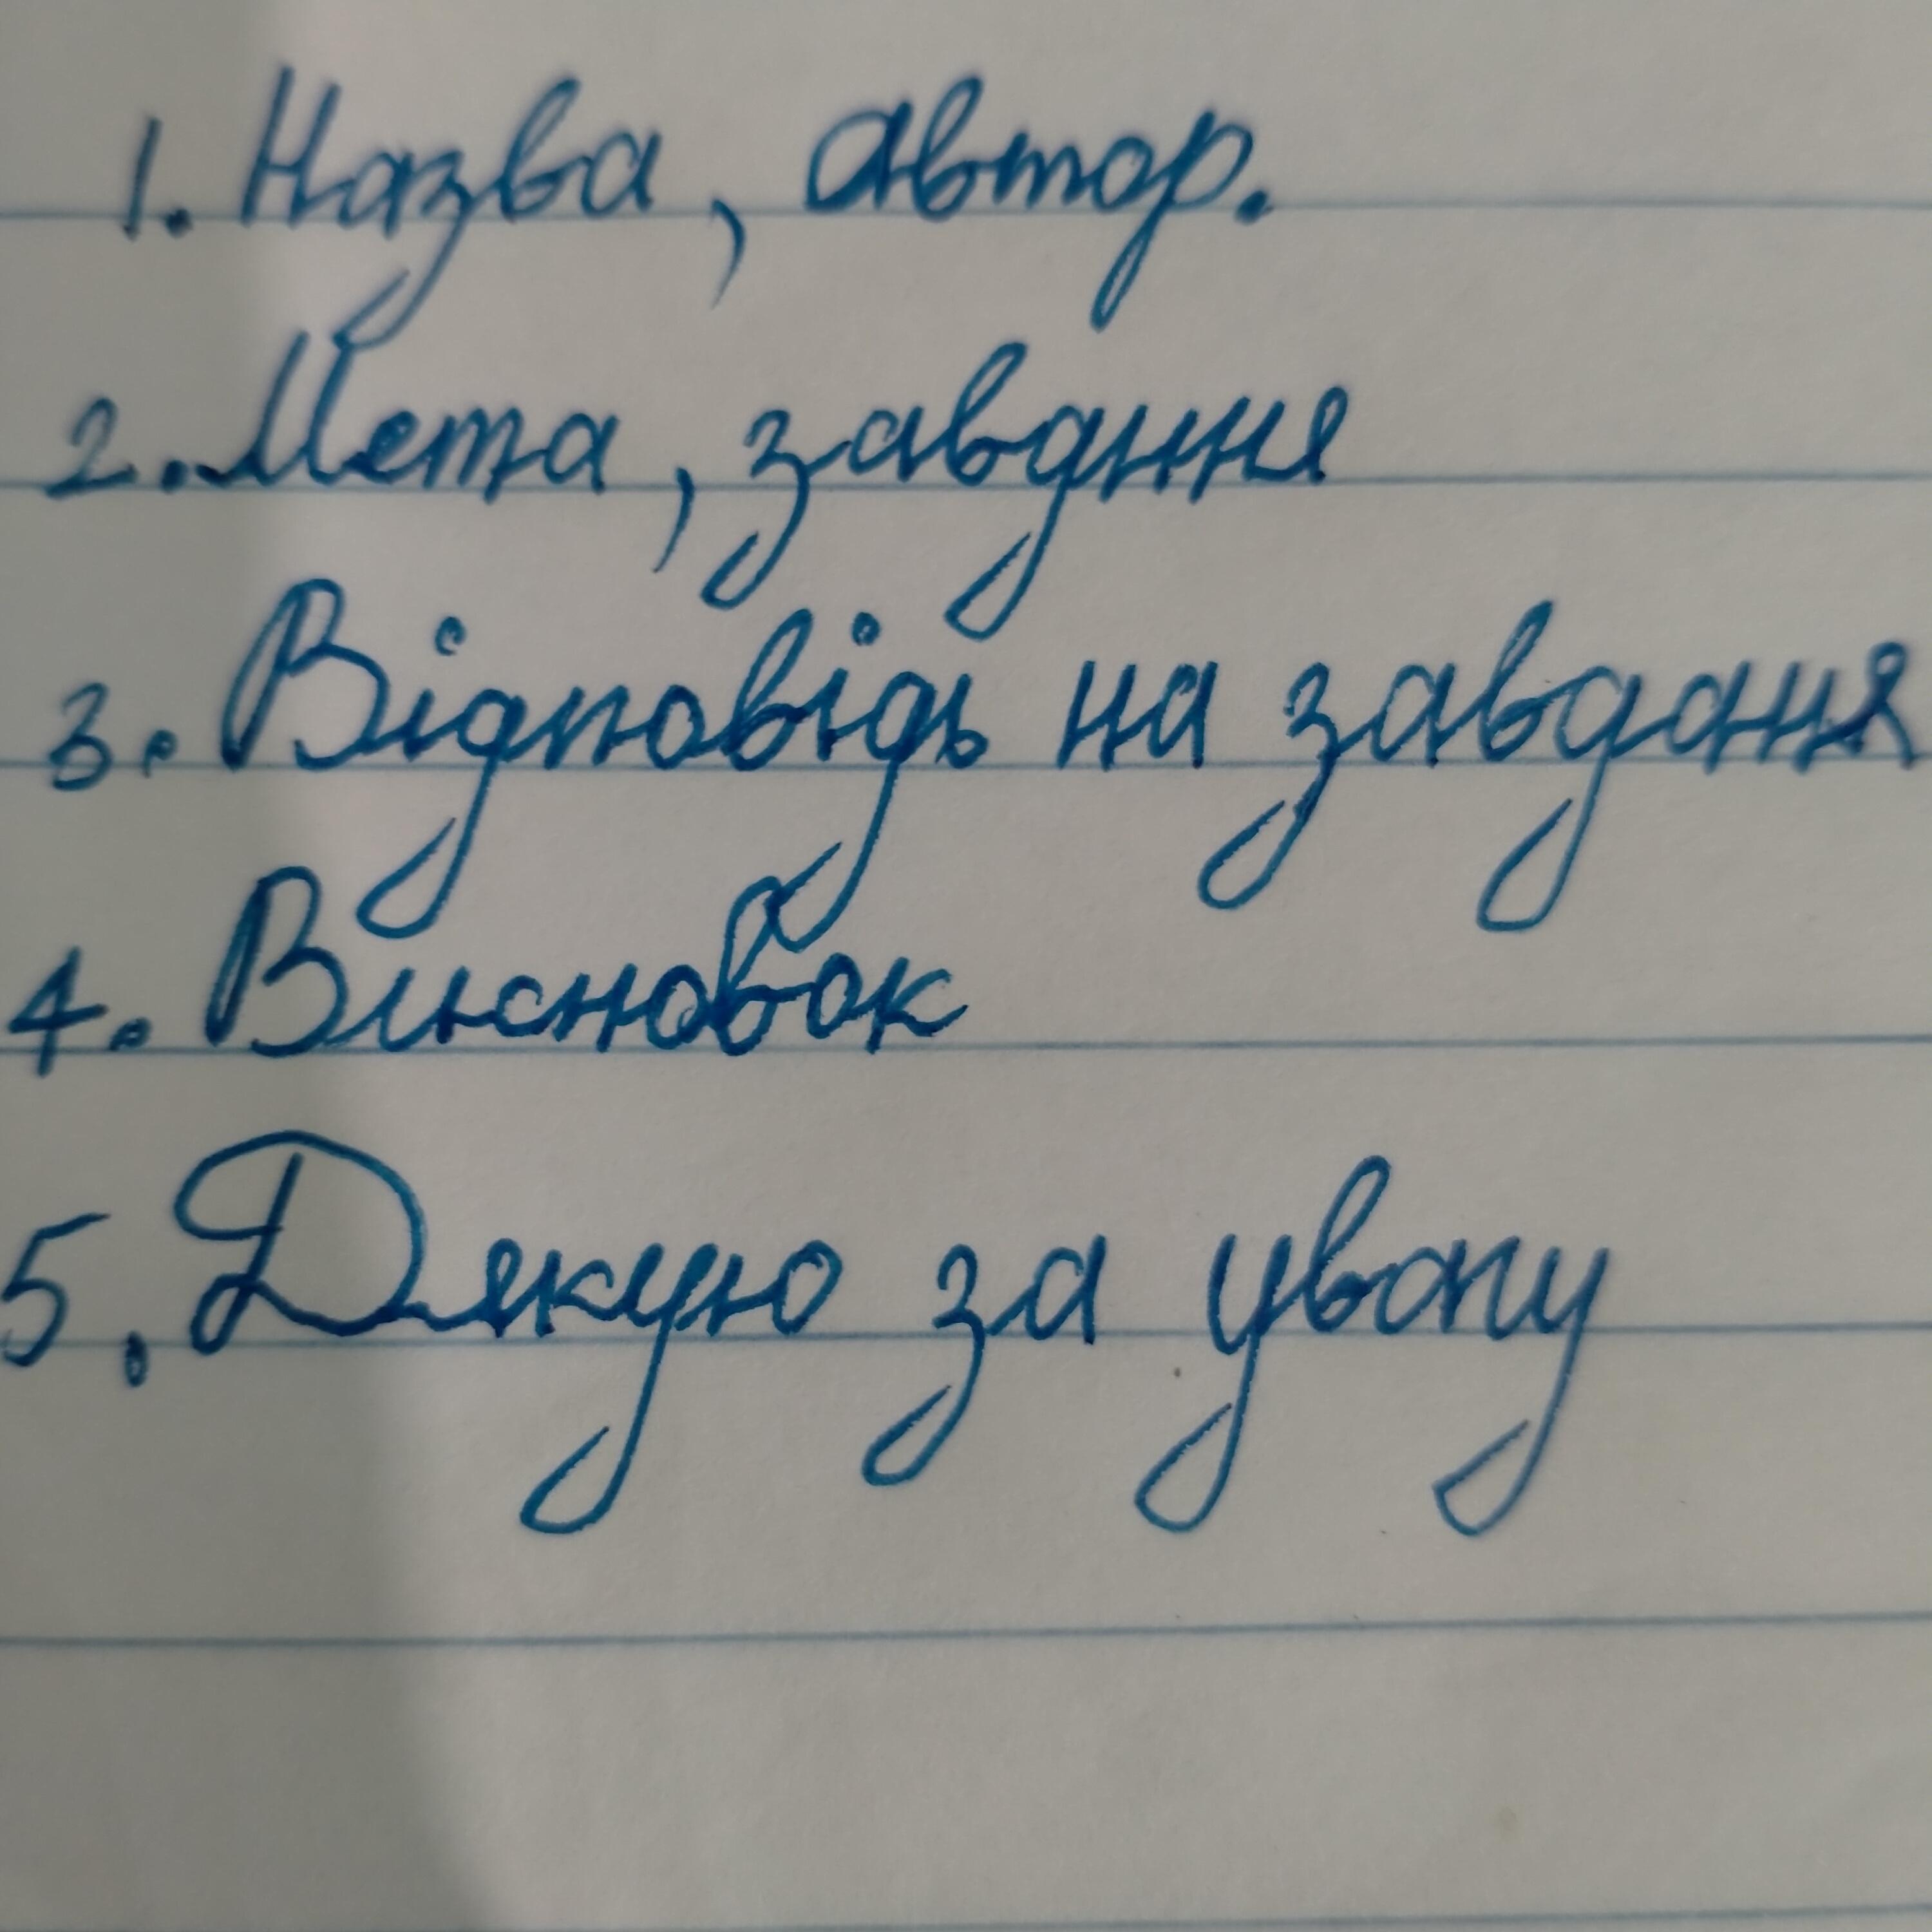 1. Назва, автор.
2. Мета, завдння
3. Відповідь на завдання
4. Висновок
5. Дякую за увагу